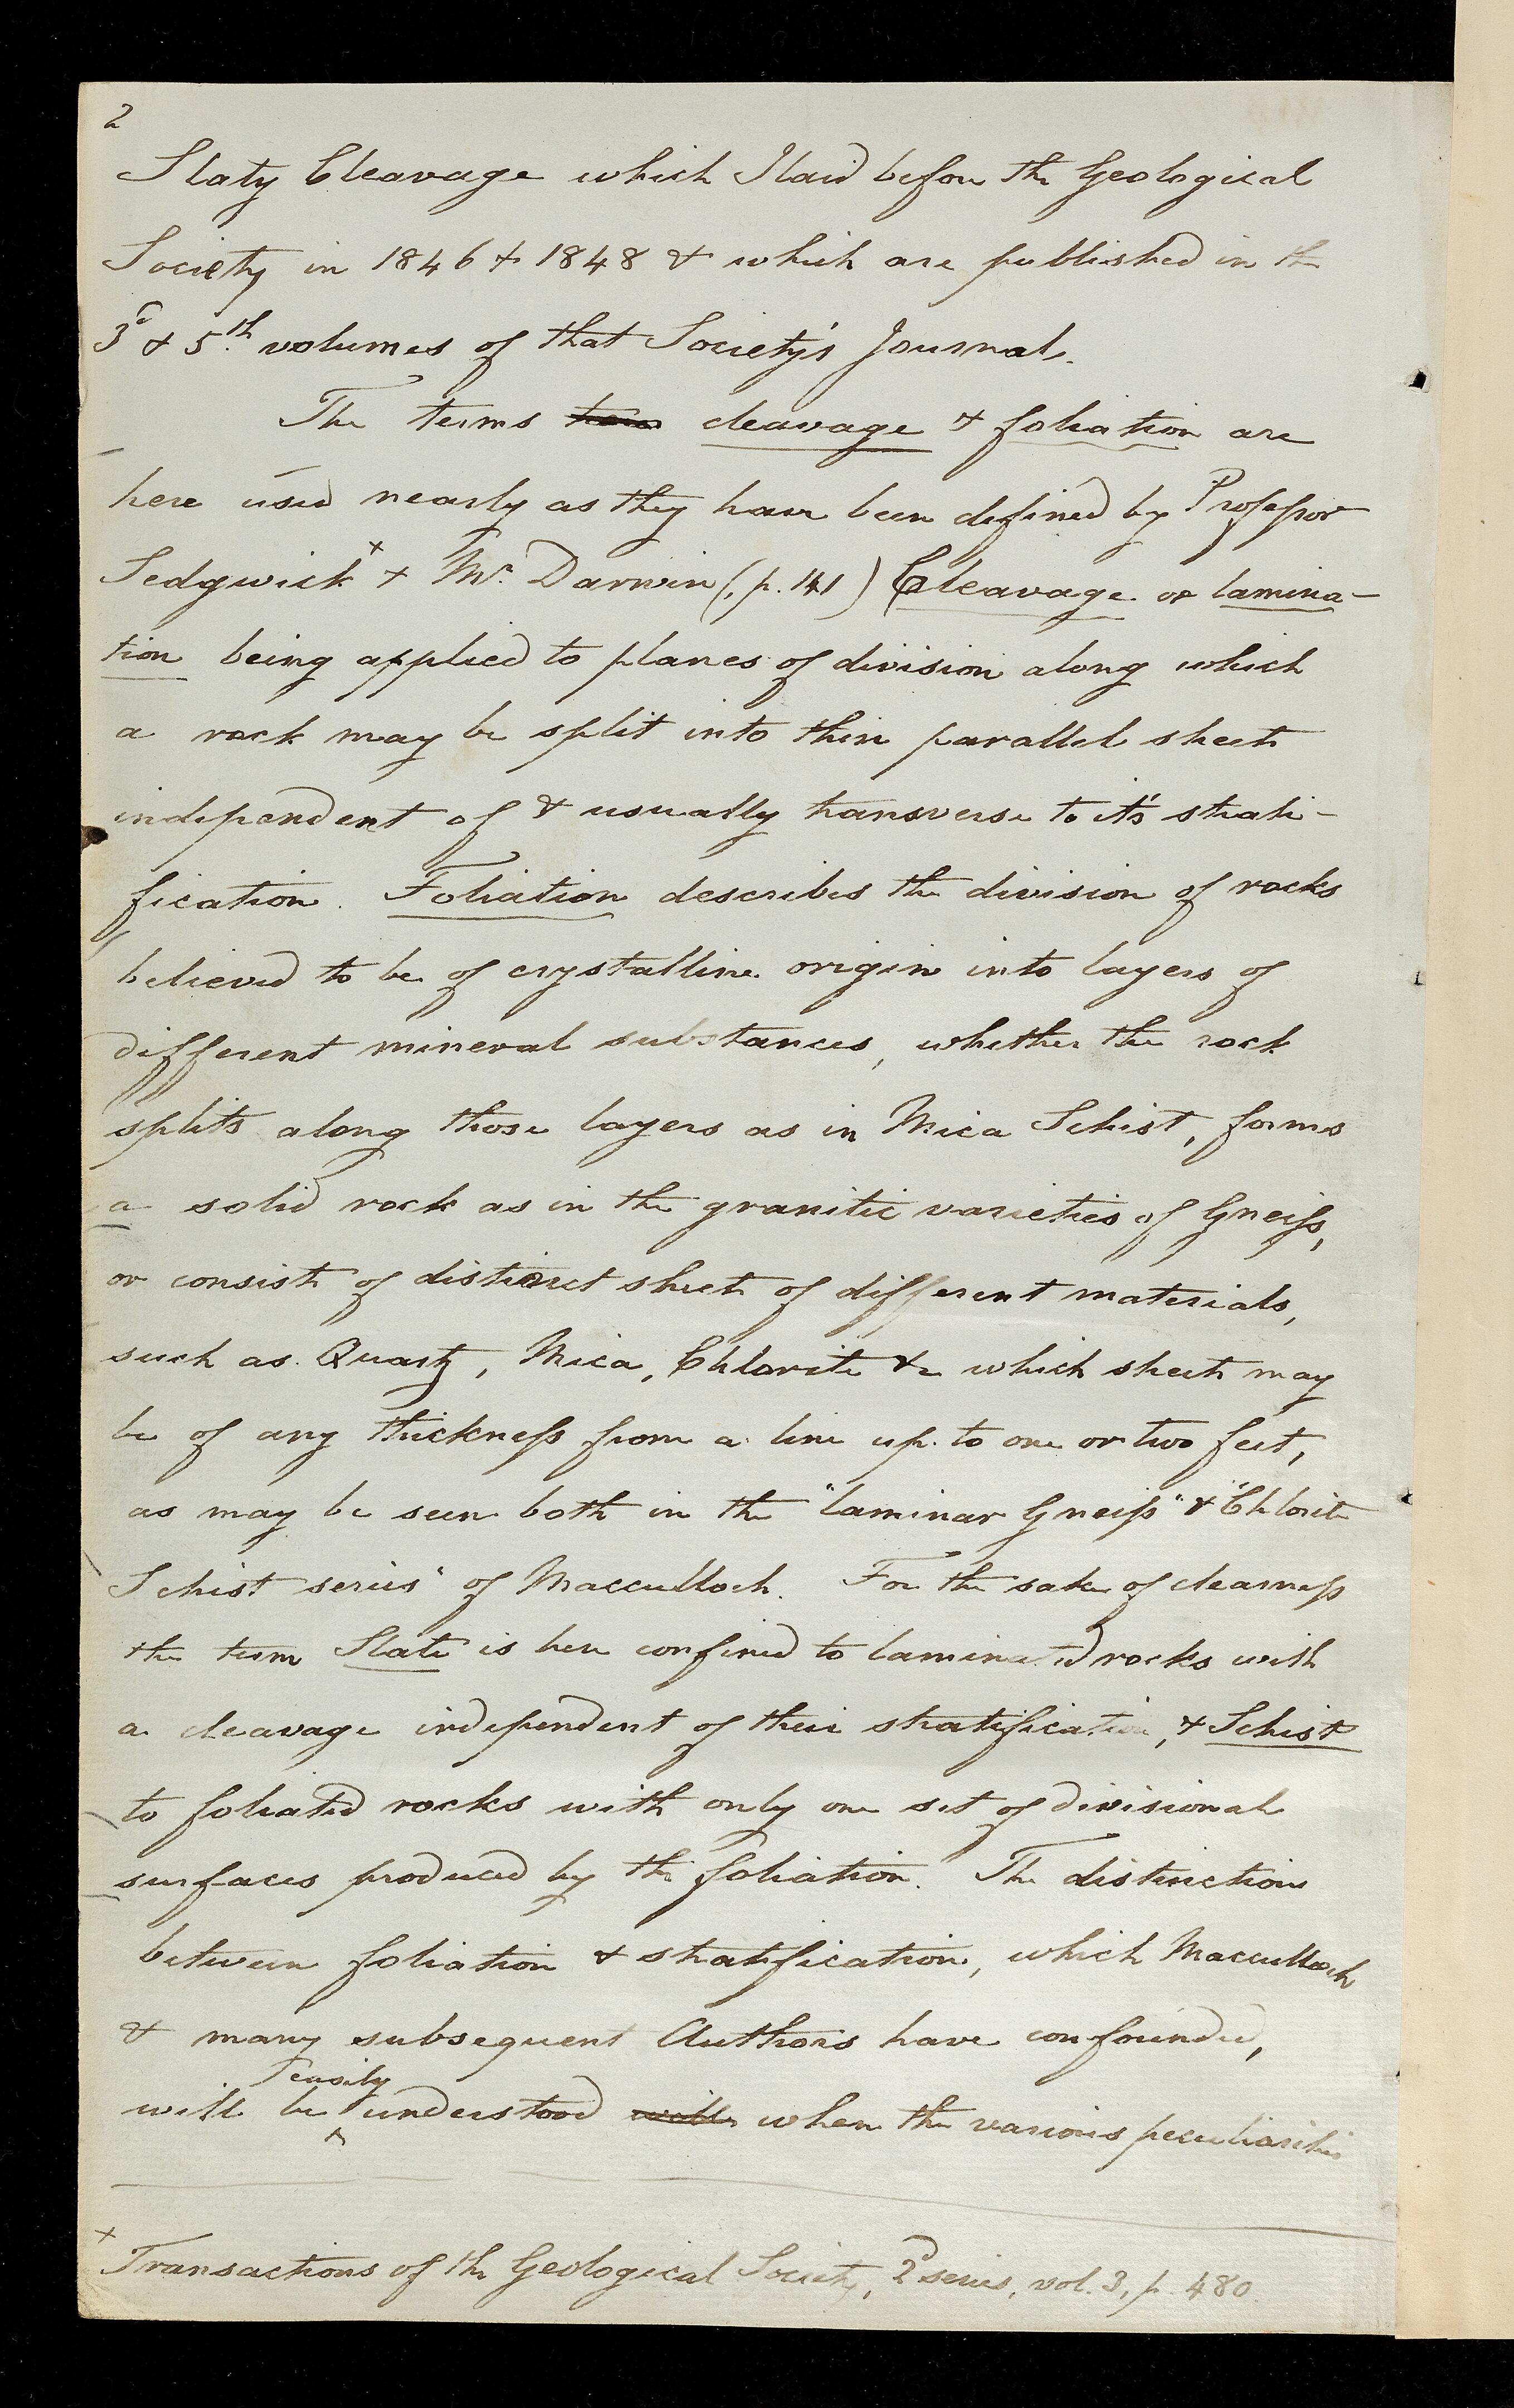 2
Slaty Cleavage which I laid before the Geological
Society in 1846 & 1848 & which are published in the
3d & 5th volumes of that Society's Journal.
The terms cleavage & foliation are
here used nearly as they have been defined by Professor
Sedgwick x & Mr. Darwin (, p. 141) Cleavage or lamina-
tion being applied to planes of division along which
a rock may be split into thin parallel sheets
independent of & usually transverse to it's strati-
fication. Foliation describes the division of rocks
believed to be of crystalline origin into layers of
different mineral substances, whether the rock
splits along those layers as in Mica Schist, forms
a solid rock as in the granitic varieties of Gneiss,
or consists of distinct sheets of different materials,
such as Quartz, Mica, Chlorite &c which sheets may
be of any thickness from a line up to one or two feet,
as may be seen both in the "laminar Gneiss" & "Chlorite
Schist series" of Macculloch. For the sake of clearness
the term Slate is here confined to laminated rocks with
a cleavage independent of their stratification, & Schist
to foliated rocks with only one set of divisional
surfaces produced by the foliation. The distinction
between foliation & stratification, which Macculloch
& many subsequent Authors have confounded,
easily
will be understood will when the various peculiarities
x Transactions of the Geological Society, 2d series, vol. 3, p. 480.